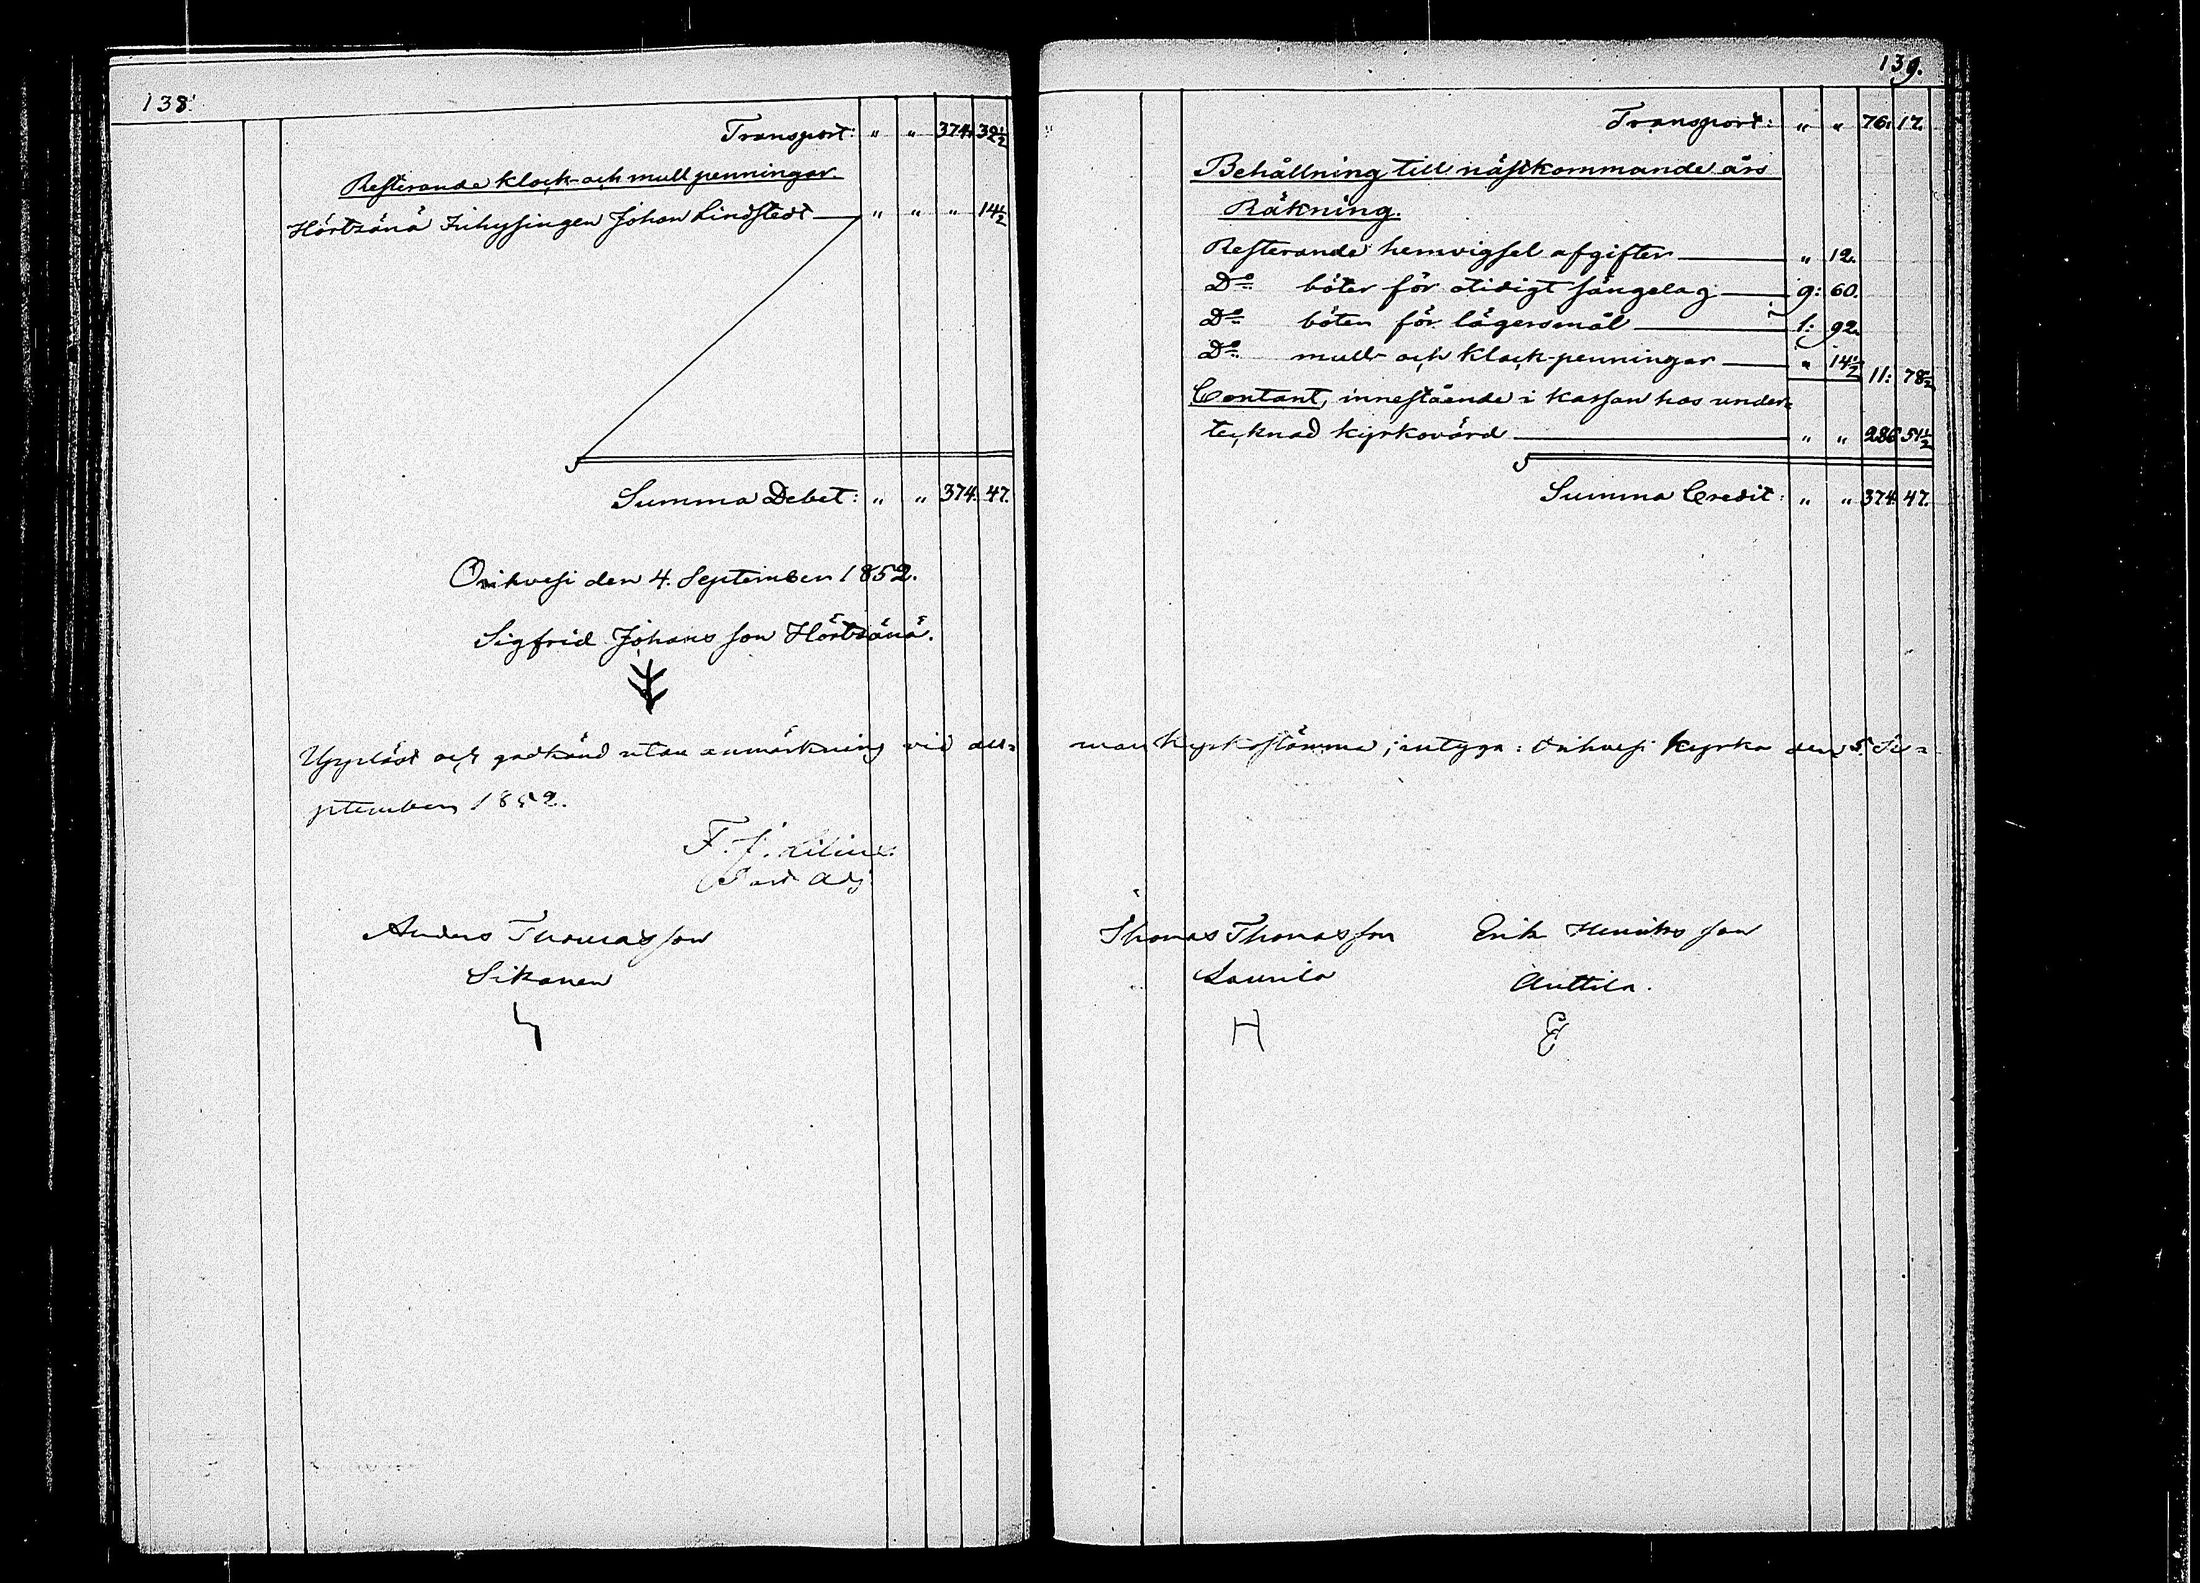 138.
Transport: " " 374. 32½
Resterande klock- och mullpenningar.
Hörtsänä Inhysingen Johan Lindstedt — " " " 14½
Summa Debet: " " 374. 47.
Orihvesi den 4. September 1852.
Sigfrid Johansson Hörtsänä.
Uppläst och godkänd utan anmärkning vid all=
ptember 1852.
F. J.
Past. Adj.
Anders Thomasson
Sikanen
139.
Transport: " " 76. 17.
Behållning till nästkommande års
Räkning.
Resterande hemvigsel afgifter — " 12.
D:o böter för otidigt sängelag — 9: 60.
D:o böter för lägersmål — 1: 92.
D:o mull- och klock-penningar — " 14½ 11: 78½
Contant, innestående i kassan hos under=
tecknad kyrkovärd — " " 286 51½
Summa Credit: " " 374. 47.
män Kyrkostämma, intyga: Orihvesi kyrka den 5. Se=
Thomas Thomasson Erik Henriksson
Laurila Anttila.
H E